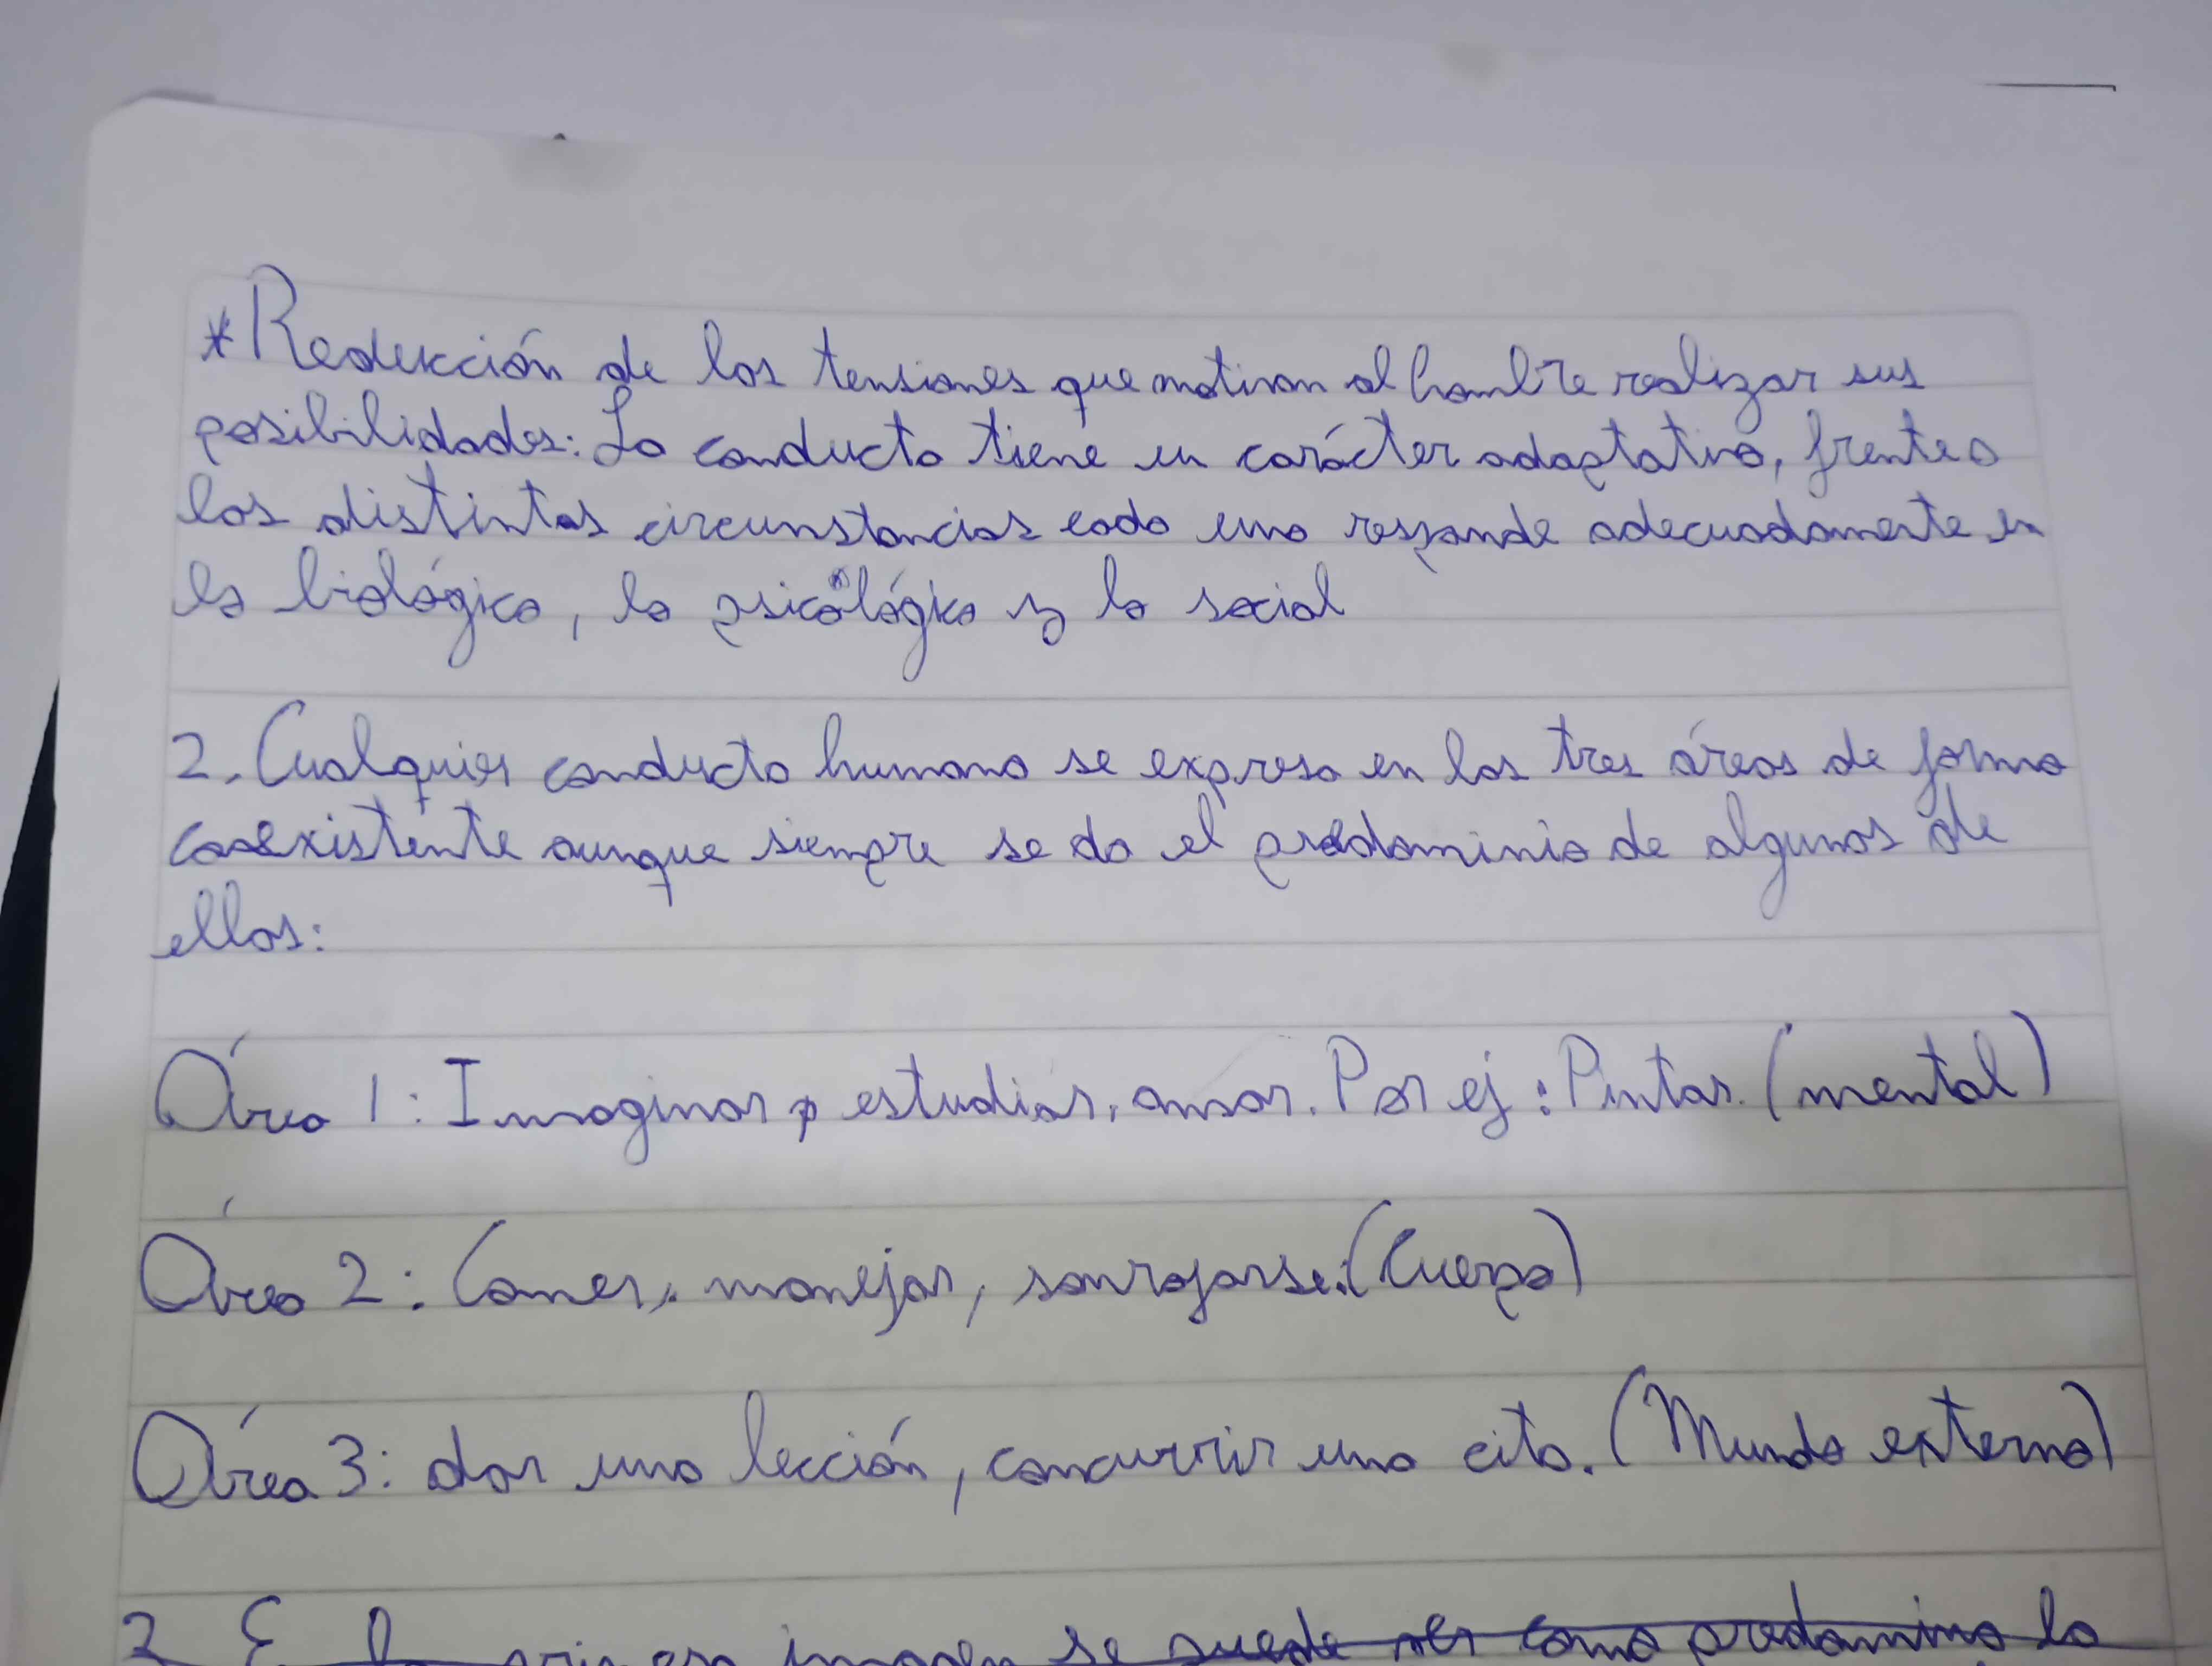 *Reducción de las tensiones que motivan al hombre realizar sus
posibilidades: La conducta tiene un carácter adaptativo, frente a
las distintas circunstancias cada uno responde adecuadamente en
lo biológico, lo psicológico y lo social
2. Cualquier conducta humana se expresa en las tres áreas de forma
coexistente aunque siempre se da el predominio de algunas de
ellas:
Área 1: Imaginar, estudiar, amar. Por ej: Pintar. (mental)
Área 2: Comer, manejar, sonrojarse. (Cuerpo)
Área 3: dar una lección, concurrir una cita. (Mundo externo)
3. En la primera imagen se puede ver como predomina la